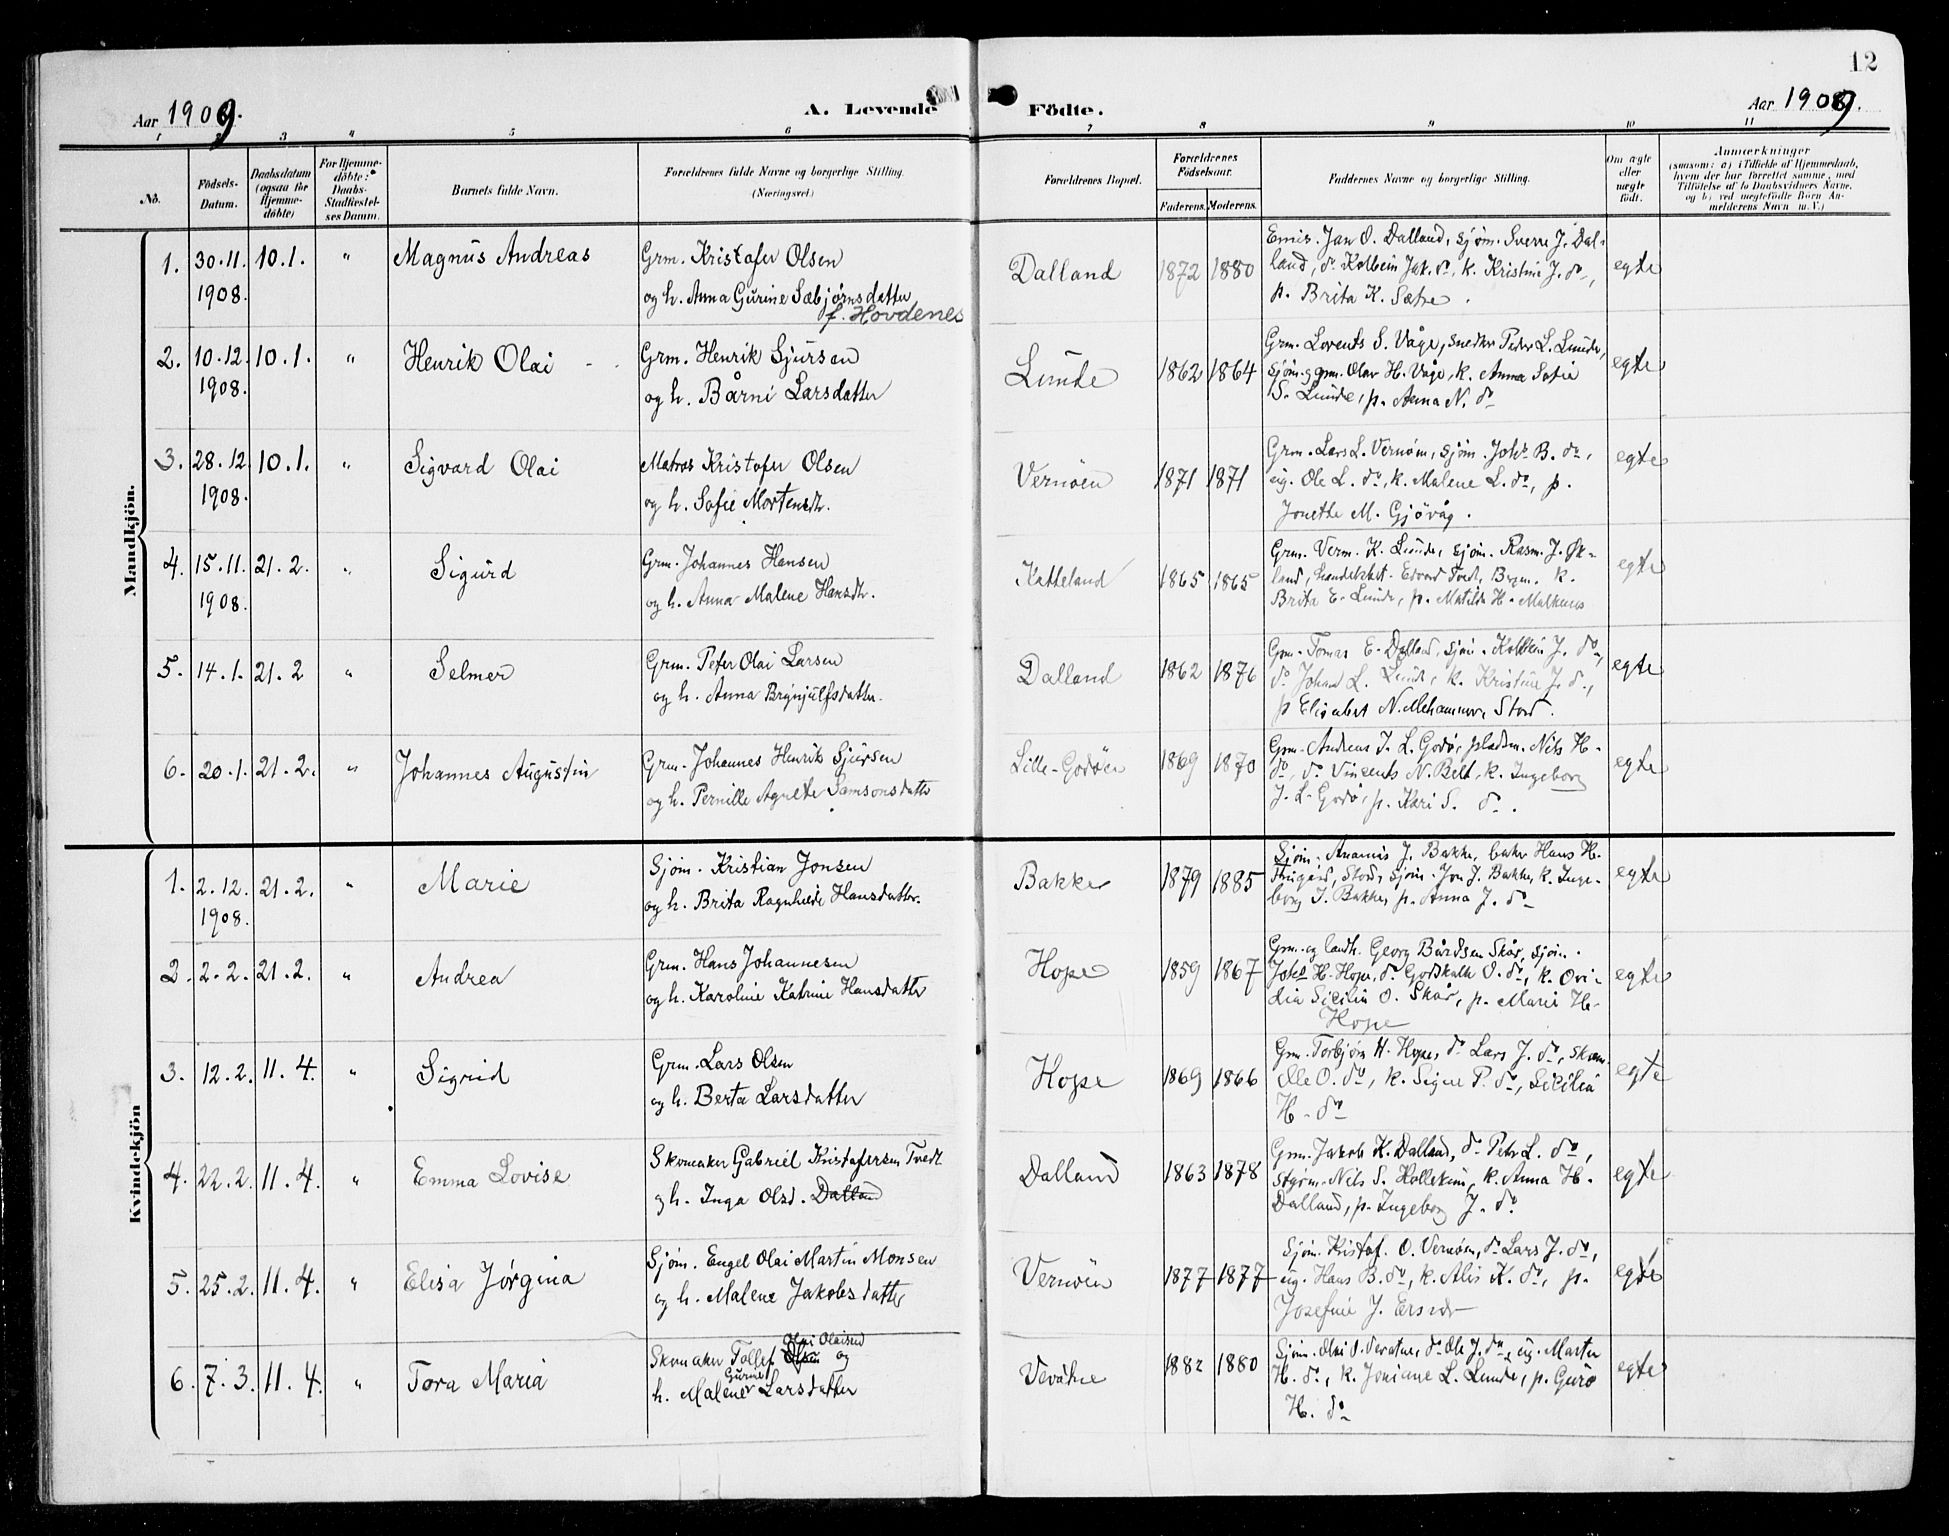 12
Aar 1909.
A. Levende Födte.
Aar 1909.
1 2 3 4 5 6 7 8 9 10 11
No.
Födsels-
Datum.
Daabsdatum
(ogsaa for
Hjemme-
döbte)
For Hjemme-
döbte:
Daabs-
Stadfæstel-
ses Datum.
Barnets fulde Navn.
Forældrenes fulde Navne og borgerlige Stilling.
(Næringsvei.)
Forældrenes Bopæl.
Forældrenes
Födselsaar.
Faderens. Moderens.
Faddernes Navne og borgerlige Stilling.
Om ægte
eller
uægte
født.
Anmærkninger
(saasom: a) i Tilfælde af Hjemmedaab,
hvem der har forrettet samme, med
Tilföielse af to Daabsvidners Navne,
og b) ved uegtefödte Börn An-
melderens Navn m. V.)
Mandkjön.
1. 30.11. 10.1. " Magnus Andreas
1908.
Grm. Kristofer Olsen
og h. Anna Gurine Sæbjørnsdatter
f. Hovdenes
Dalland 1872 1880
Jan O. Dalland, sjøm. Sverre J. Dal-
land, do Kolbein Jak. do, k. Kristine J. do,
p. Brita K. Sætre.
egte
2. 10.12. 10.1. " Henrik Olai
1908.
Grm. Henrik Sjursen
og h. Bårni Larsdatter
Lunde 1862 1864
Grm. Lorents S. Våge, snedker Peder L. Lunde,
sjøm. og grm. Olav H. Våge, k. Anna Sofie
S. Lunde, p. Anna N. do
egte
3. 28.12. 10.1. " Sigvard Olai
1908.
Matros Kristofer Olsen
og h. Sofie Mortensdtr.
Vernøen 1871 1871
Grm. Lars L. Vernøen, sjøm. Johs B. do,
ug. Ole L. do, k. Malene L. do, p.
Jonetta M. Gjövåg.
egte
4. 15.11. 21.2. " Sigurd
1908.
Grm. Johannes Hansen
og h. Anna Malene Hansdtr.
Katteland 1865 1865
Grm. Verm. K. Lunde, sjøm. Rasm. J. Øk-
land, Edvard Tvedt, k.
Brita E. Lunde, p. Matilde H.
egte
5. 14.1. 21.2 " Selmer
Grm. Peter Olai Larsen
og h. Anna Brynjulfsdatter.
Dalland 1862 1876
Grm. Tomas E. Dalland, sjøm. Kolbein J. do,
do Johan L. Lunde, k. Kristine J. do,
p Elisabet N. Mehammer, Stord.
egte
6. 20.1. 21.2. " Johannes Augustin
Grm. Johannes Henrik Sjursen
og h. Pernille Agnethe Samsonsdatter
Lille-Godöen 1869 1870
Grm. Andreas J. L. Godø, pladsm. Nils H.
do, do Vincents N. Belt, k. Ingeborg
J. L. Godø, p. Kari S. do.
egte
Kvindekjön
1. 2.12. 21.2. " Marie
1908.
Sjøm. Kristian Jonsen
og h. Brita Ragnhilde Hansdatter.
Bakke 1879 1885
Sjøm. J. Bakke, baker Hans H.
Stord, sjøm. Jon J. Bakke, k. Inge-
borg J. Bakke, p. Anna J. do
egte
2. 2.2. 21.2. " Andrea
Grm. Hans Johannesen
og h. Karoline Katrine Hansdatter
Hope 1859 1867
Grm. og landh. Georg Bårdsen Skår, sjøm.
Johs H. Hope, do Godskalk O. do, k. Ovi-
dia Sicilia O. Skår, p. Marie H.
Hope
egte
3. 12.2. 11.4. " Sigrid
Grm. Lars Olsen
og h. Berta Larsdatter
Hope 1869 1866
Grm. Torbjørn H. Hope, do Lars J. do, skom.
Ole O. do, k. Signe P. do, Sicilia
H. do
egte
4. 22.2. 11.4. " Emma Lovise
Skomaker Gabriel Kristofersen Tvedt
og h. Inga Olsd. Dalland
Dalland 1863 1878
Grm. Jakob K. Dalland, do Petr L. do,
styrm. Nils S. Hollekim, k. Anna H.
Dalland, p. Ingeborg J. do
egte
5. 25.2. 11.4. " Elisa Jørgina
Sjøm. Engel Olai Martin Monsen
og h. Malene Jakobsdatter
Vernöen 1877 1877
Sjøm. Kristof. O. Vernøen, do Lars J. do,
ug. Hans B. do, k. Alis K. do, p.
Josefine J.
egte
6. 7.3. 11.4. " Tora Maria
Olai Olaisen
Skomaker Tollef Olsen og
Gurine
h. Malene Larsdatter
1882 1880
Sjøm. Olai O. do Ole J. do, ug. Martin
H. do, k. Joniane L. Lunde, p. Guro
H. do
egte